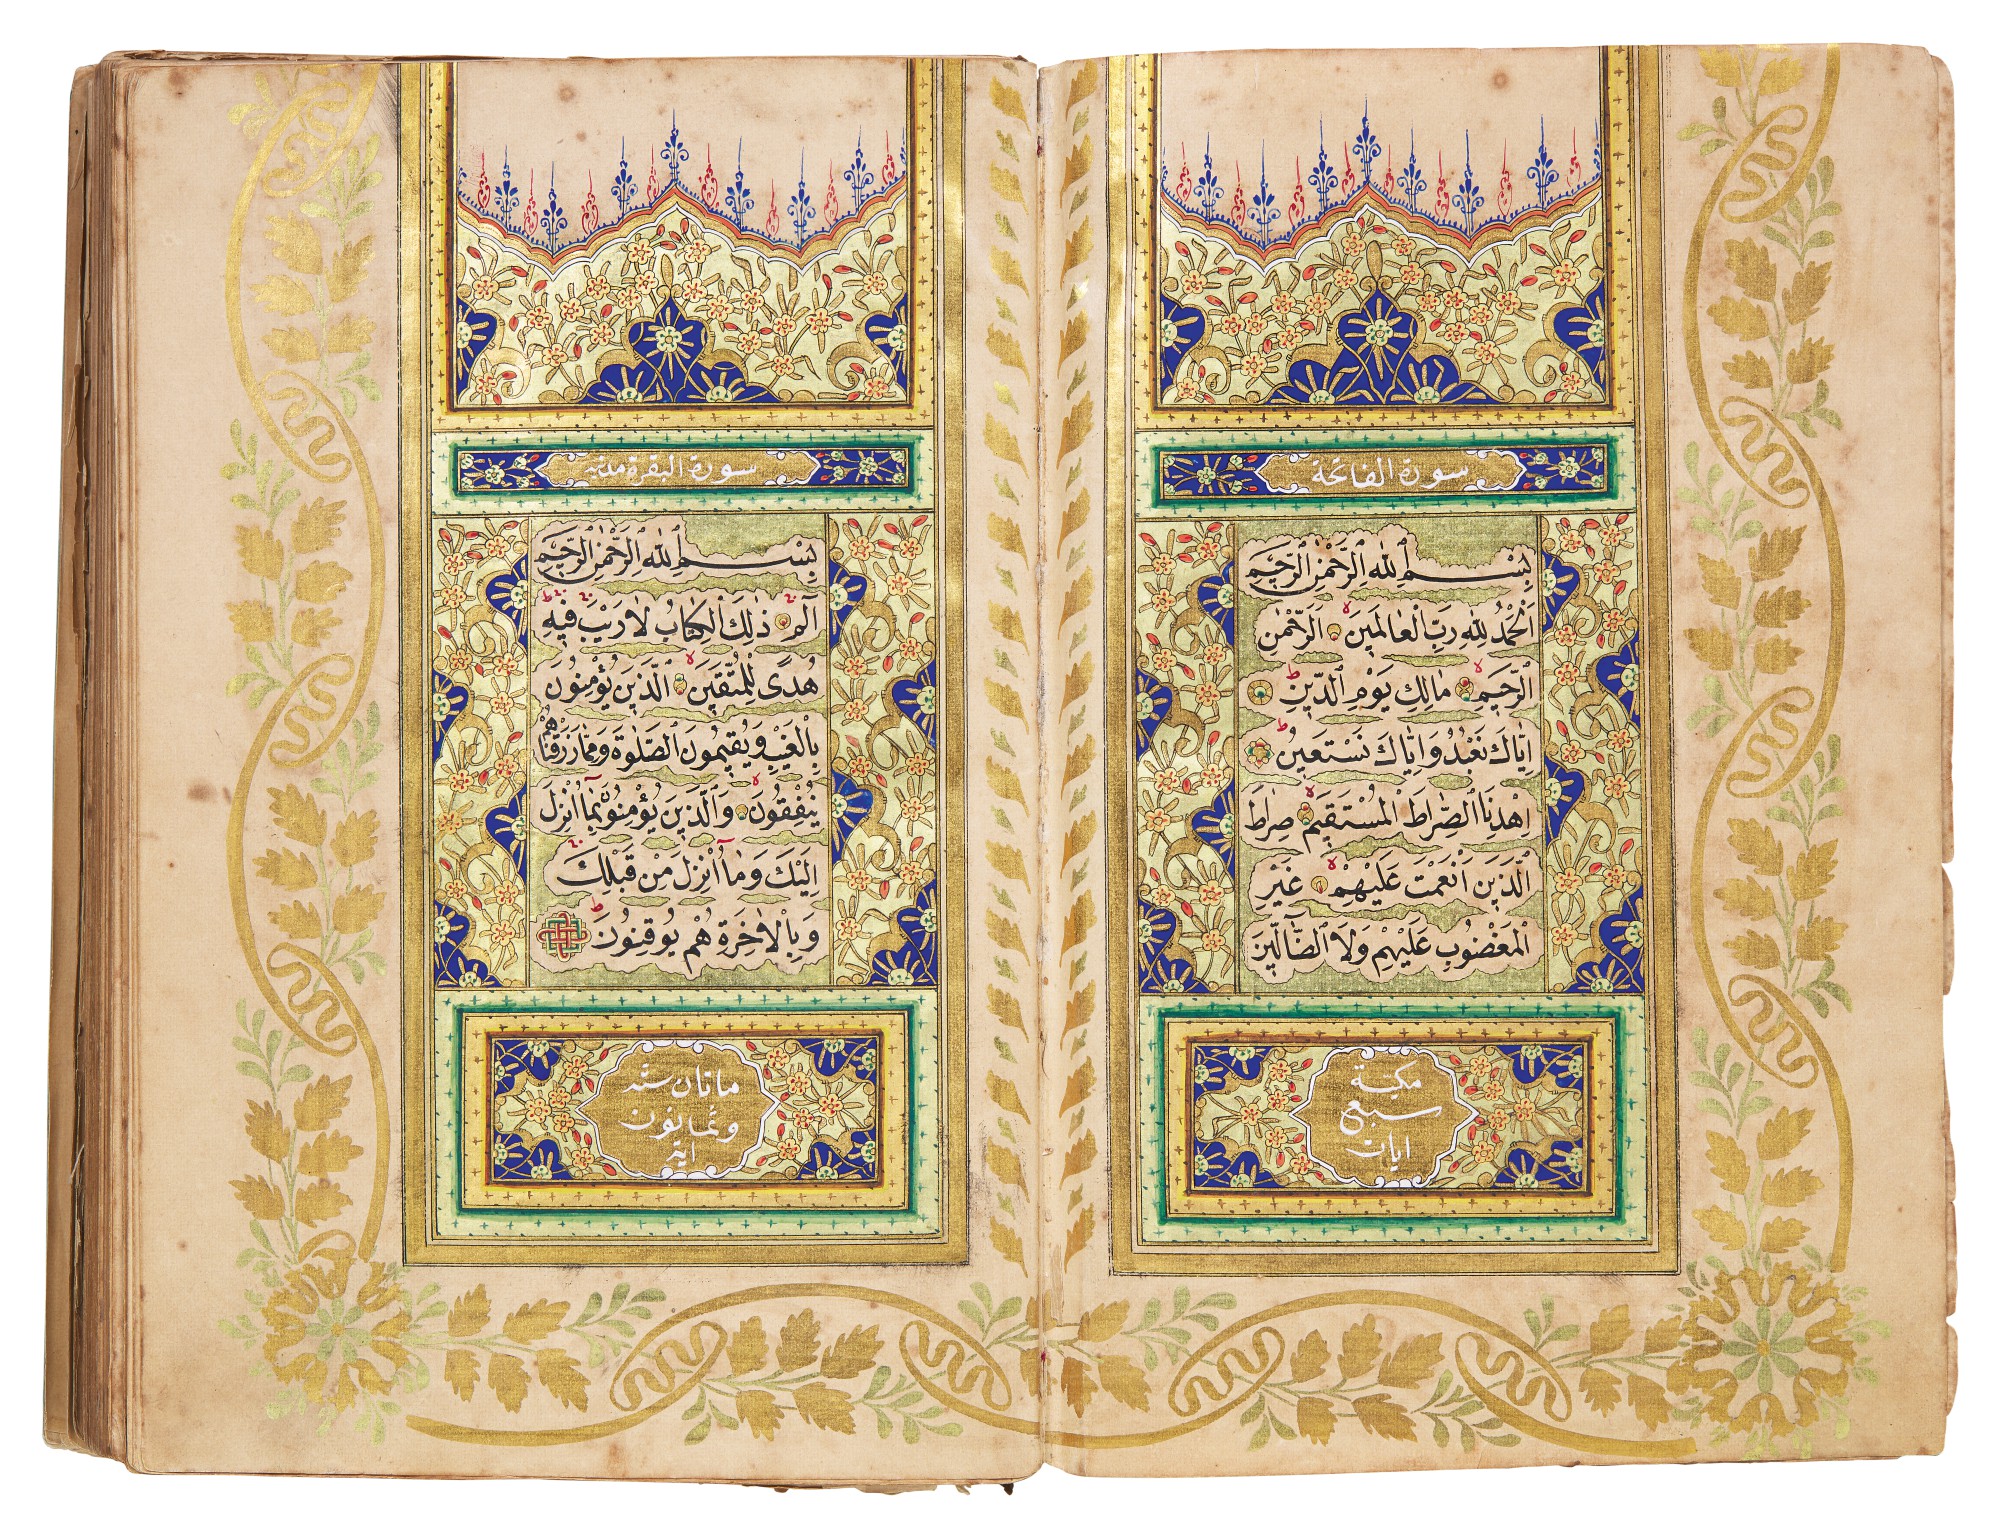 سورة الفاتحة
بِسْمِ ٱللهِ ٱلرَّحْمٰنِ ٱلرَّحِيمِ
اَلْحَمْدُ لِلّٰهِ رَبِّ الْعَالَمِينَ الرَّحْمٰنِ
الرَّحِيمِ مَالِكِ يَوْمِ الدِّينِ
اِيَّاكَ نَعْبُدُ وَاِيَّاكَ نَسْتَعِينُ
اِهْدِنَا الصِّرَاطَ الْمُسْتَقِيمَ صِرَاطَ
الَّذِينَ اَنْعَمْتَ عَلَيْهِمْ غَيْرِ
الْمَغْضُوبِ عَلَيْهِمْ وَلَا الضَّٓالِّينَ
مكية
سبع
ايات
سورة البقرة مدنية
بِسْمِ ٱللهِ ٱلرَّحْمٰنِ ٱلرَّحِيمِ
الٓمٓ ذٰلِكَ الْكِتَابُ لَا رَيْبَ فِيهِ
هُدًى لِلْمُتَّقِينَ اَلَّذِينَ يُؤْمِنُونَ
بِالْغَيْبِ وَيُقِيمُونَ الصَّلٰوةَ وَمِمَّا رَزَقْنَاهُمْ
يُنْفِقُونَ وَالَّذِينَ يُؤْمِنُونَ بِمَٓا اُنْزِلَ
اِلَيْكَ وَمَٓا اُنْزِلَ مِنْ قَبْلِكَ
وَبِالْاٰخِرَةِ هُمْ يُوقِنُونَ
ماتان ستة
وثمانون
اية